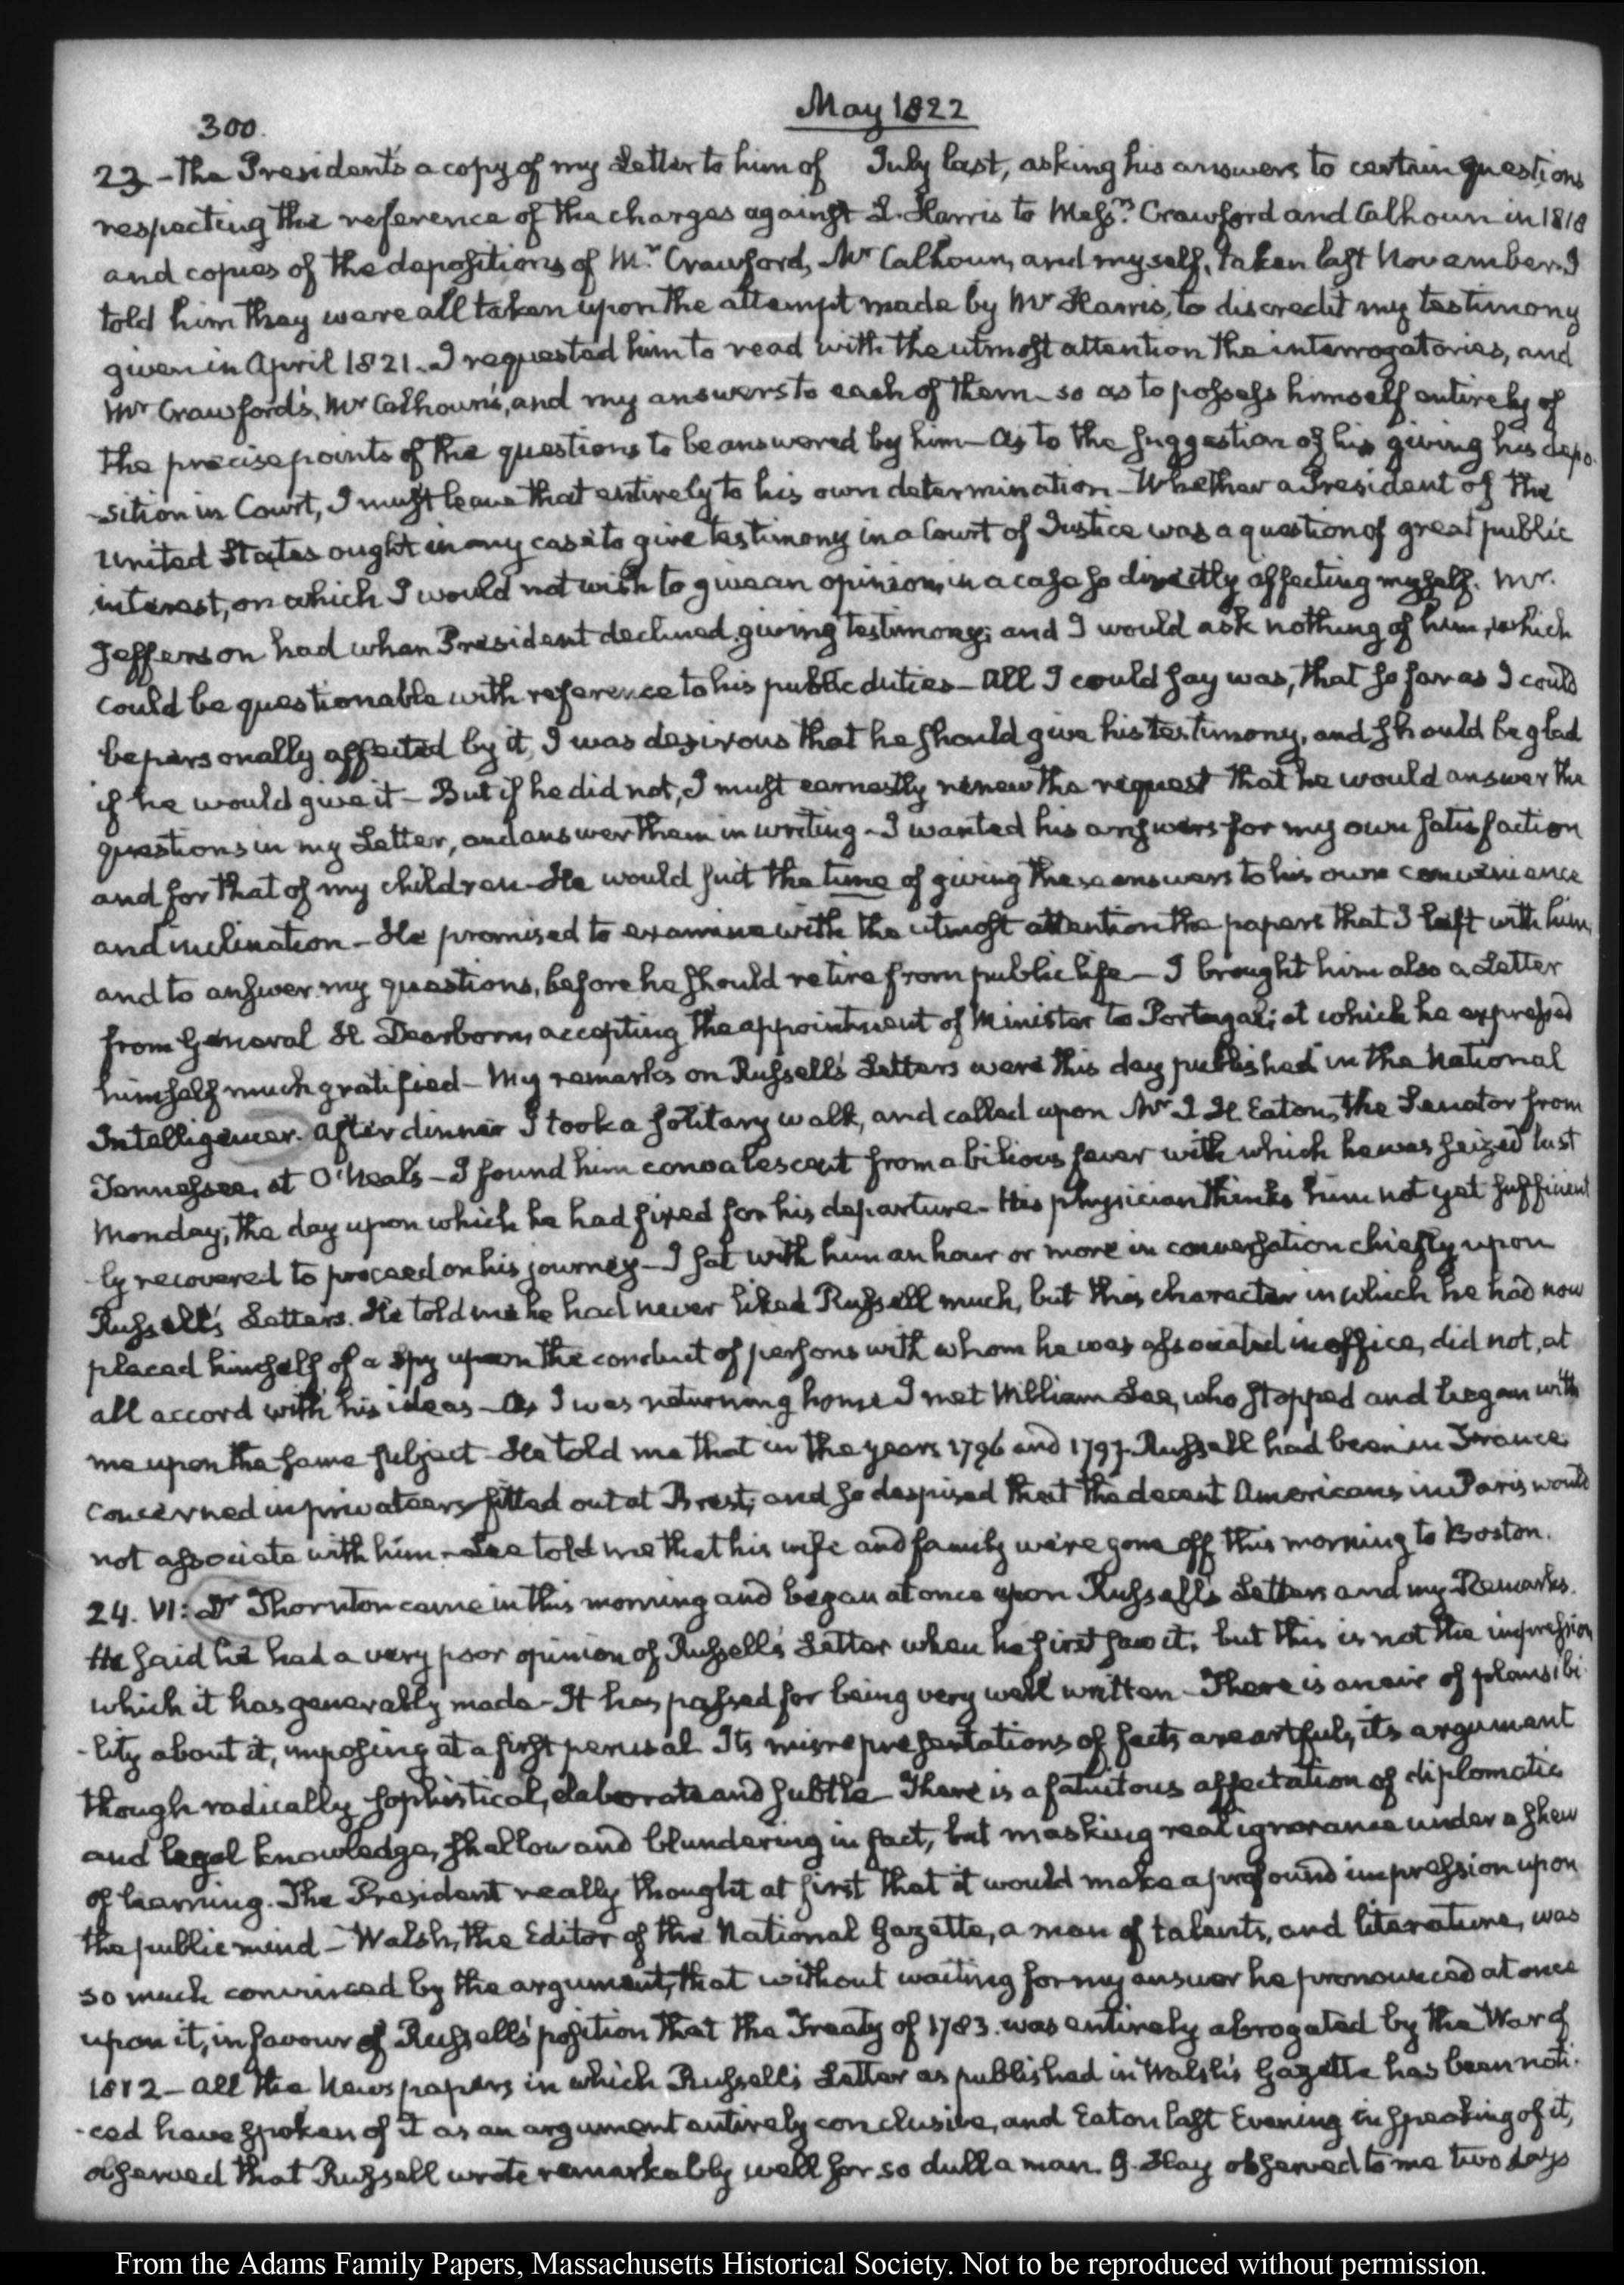 May 1822
300.
23 - The President's a copy of my Letter to him of July last, asking his answers to certain questions
respecting the reference of the charges against L. Harris to Messrs. Crawford and Calhoun in 1818
and copies of the depositions of Mr. Crawford, Mr Calhoun, and myself, taken last November. I
told him they were all taken upon the attempt made by Mr Harris, to discredit my testimony
given in April 1821. I requested him to read with the utmost attention the interrogatories, and
Mr Crawford's, Mr Calhoun's, and my answers to each of them - so as to possess himself entirely of
the precise points of the questions to be answered by him - As to the suggestion of his giving his depo-
-sition in Court, I must leave that entirely to his own determination - Whether a President of the
United States ought in any case to give testimony in a Court of Justice was a question of great public
interest, on which I would not wish to give an opinion, in a case so directly affecting myself. Mr.
Jefferson had when President declined giving testimony; and I would ask nothing of him, which
could be questionable with reference to his public duties - All I could say was, that so far as I could
be personally affected by it, I was desirous that he should give his testimony, and should be glad
if he would give it - But if he did not, I must earnestly renew the request that he would answer the
questions in my Letter, and answer them in writing - I wanted his answers for my own satisfaction
and for that of my children - He would suit the time of giving these answers to his own convenience
and inclination - He promised to examine with the utmost attention the papers that I left with him,
and to answer my questions, before he should retire from public life - I brought him also a Letter
from General H. Dearborn, accepting the appointment of Minister to Portugal; at which he expressed
himself much gratified - My remarks on Russell's Letters were this day published in the National
Intelligencer. After dinner I took a solitary walk, and called upon Mr J. H. Eaton, the Senator from
Tennessee, at O'Neal's - I found him convalescent from a bilious fever with which he was seized last
Monday; the day upon which he had fixed for his departure - His physician thinks him not yet sufficient
-ly recovered to proceed on his journey - I sat with him an hour or more in conversation chiefly upon
Russell's Letters. He told me he had never liked Russell much, but this character in which he had now
placed himself of a spy upon the conduct of persons with whom he was associated in office, did not, at
all accord with his ideas - As I was returning home I met William Lee, who stopped and began with
me upon the same subject - He told me that in the years 1796 and 1797 Russell had been in France
concerned in privateers fitted out at Brest; and so despised that the decent Americans in Paris would
not associate with him - Lee told me that his wife and family were gone off this morning to Boston.
24. VI: Dr Thornton came in this morning and began at once upon Russell's Letters and my Remarks.
He said he had a very poor opinion of Russell's Letter when he first saw it; but this is not the impression
which it has generally made - It has passed for being very well written - There is an air of plausibi-
-lity about it, imposing at a first perusal. Its misrepresentations of facts are artful, its argument
though radically sophistical, elaborate and subtle - There is a fatuitous affectation of diplomatic
and legal knowledge, shallow and blundering in fact, but masking real ignorance under a shew
of learning. The President really thought at first that it would make a profound impression upon
the public mind - Walsh, the Editor of the National Gazette, a man of talents, and literature, was
so much convinced by the argument, that without waiting for my answer he pronounced at once
upon it, in favour of Russell's position that the Treaty of 1783. was entirely abrogated by the War of
1812 - All the Newspapers in which Russell's Letter as published in Walsh's Gazette has been noti-
-ced have spoken of it as an argument entirely conclusive, and Eaton last Evening in speaking of it,
observed that Russell wrote remarkably well for so dull a man. G. Hay observed to me two days
From the Adams Family Papers, Massachusetts Historical Society. Not to be reproduced without permission.